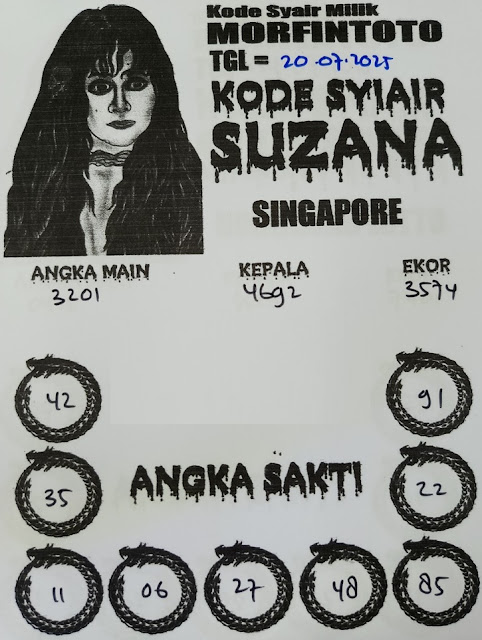 Kode Syair Milik
MORFINTOTO
TGL = 20.07.2025
KODE SYIAIR
SUZANA
SINGAPORE
ANGKA MAIN KEPALA EKOR
3201 4692 3574
42 91
35 ANGKA SAKTI 22
11 06 27 48 85